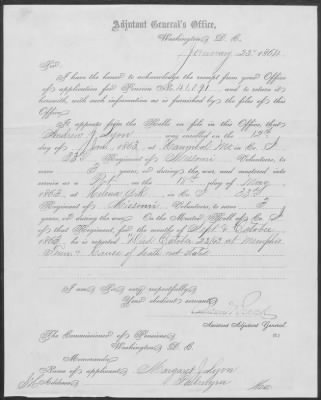 Adjutant General's Office,
Washington, D. C.
January 23d 1864
Sir:
I have the honor to acknowledge the receipt from your Office
of application for Pension No. 41,891, and to return it
herewith, with such information as is furnished by the files of this
Office.
It appears from the Rolls on file in this Office, that
Andrew J. Lyon was enrolled on the 12th
day of 1863, at Hannibal Mo in Co. I
33d Regiment of Missouri Volunteers, to serve
3 years, or during the war, and mustered into
service as a Pvt. on the day of May
1863, at in Co. I 33d
Regiment of Missouri Volunteers, to serve 3
years, or during the war. On the Muster Roll of Co. I
of that Regiment, for the months of Sept & October
1863, he is reported "Died October 22/63 at Memphis
Tenn" Cause of death not stated
I am, Sir, very respectfully,
Your obedient servant,
Assistant Adjutant General.
The Commissioner of Pensions,
Washington, D. C.
Memoranda:
Name of applicant, Margaret J. Lyon
Address,